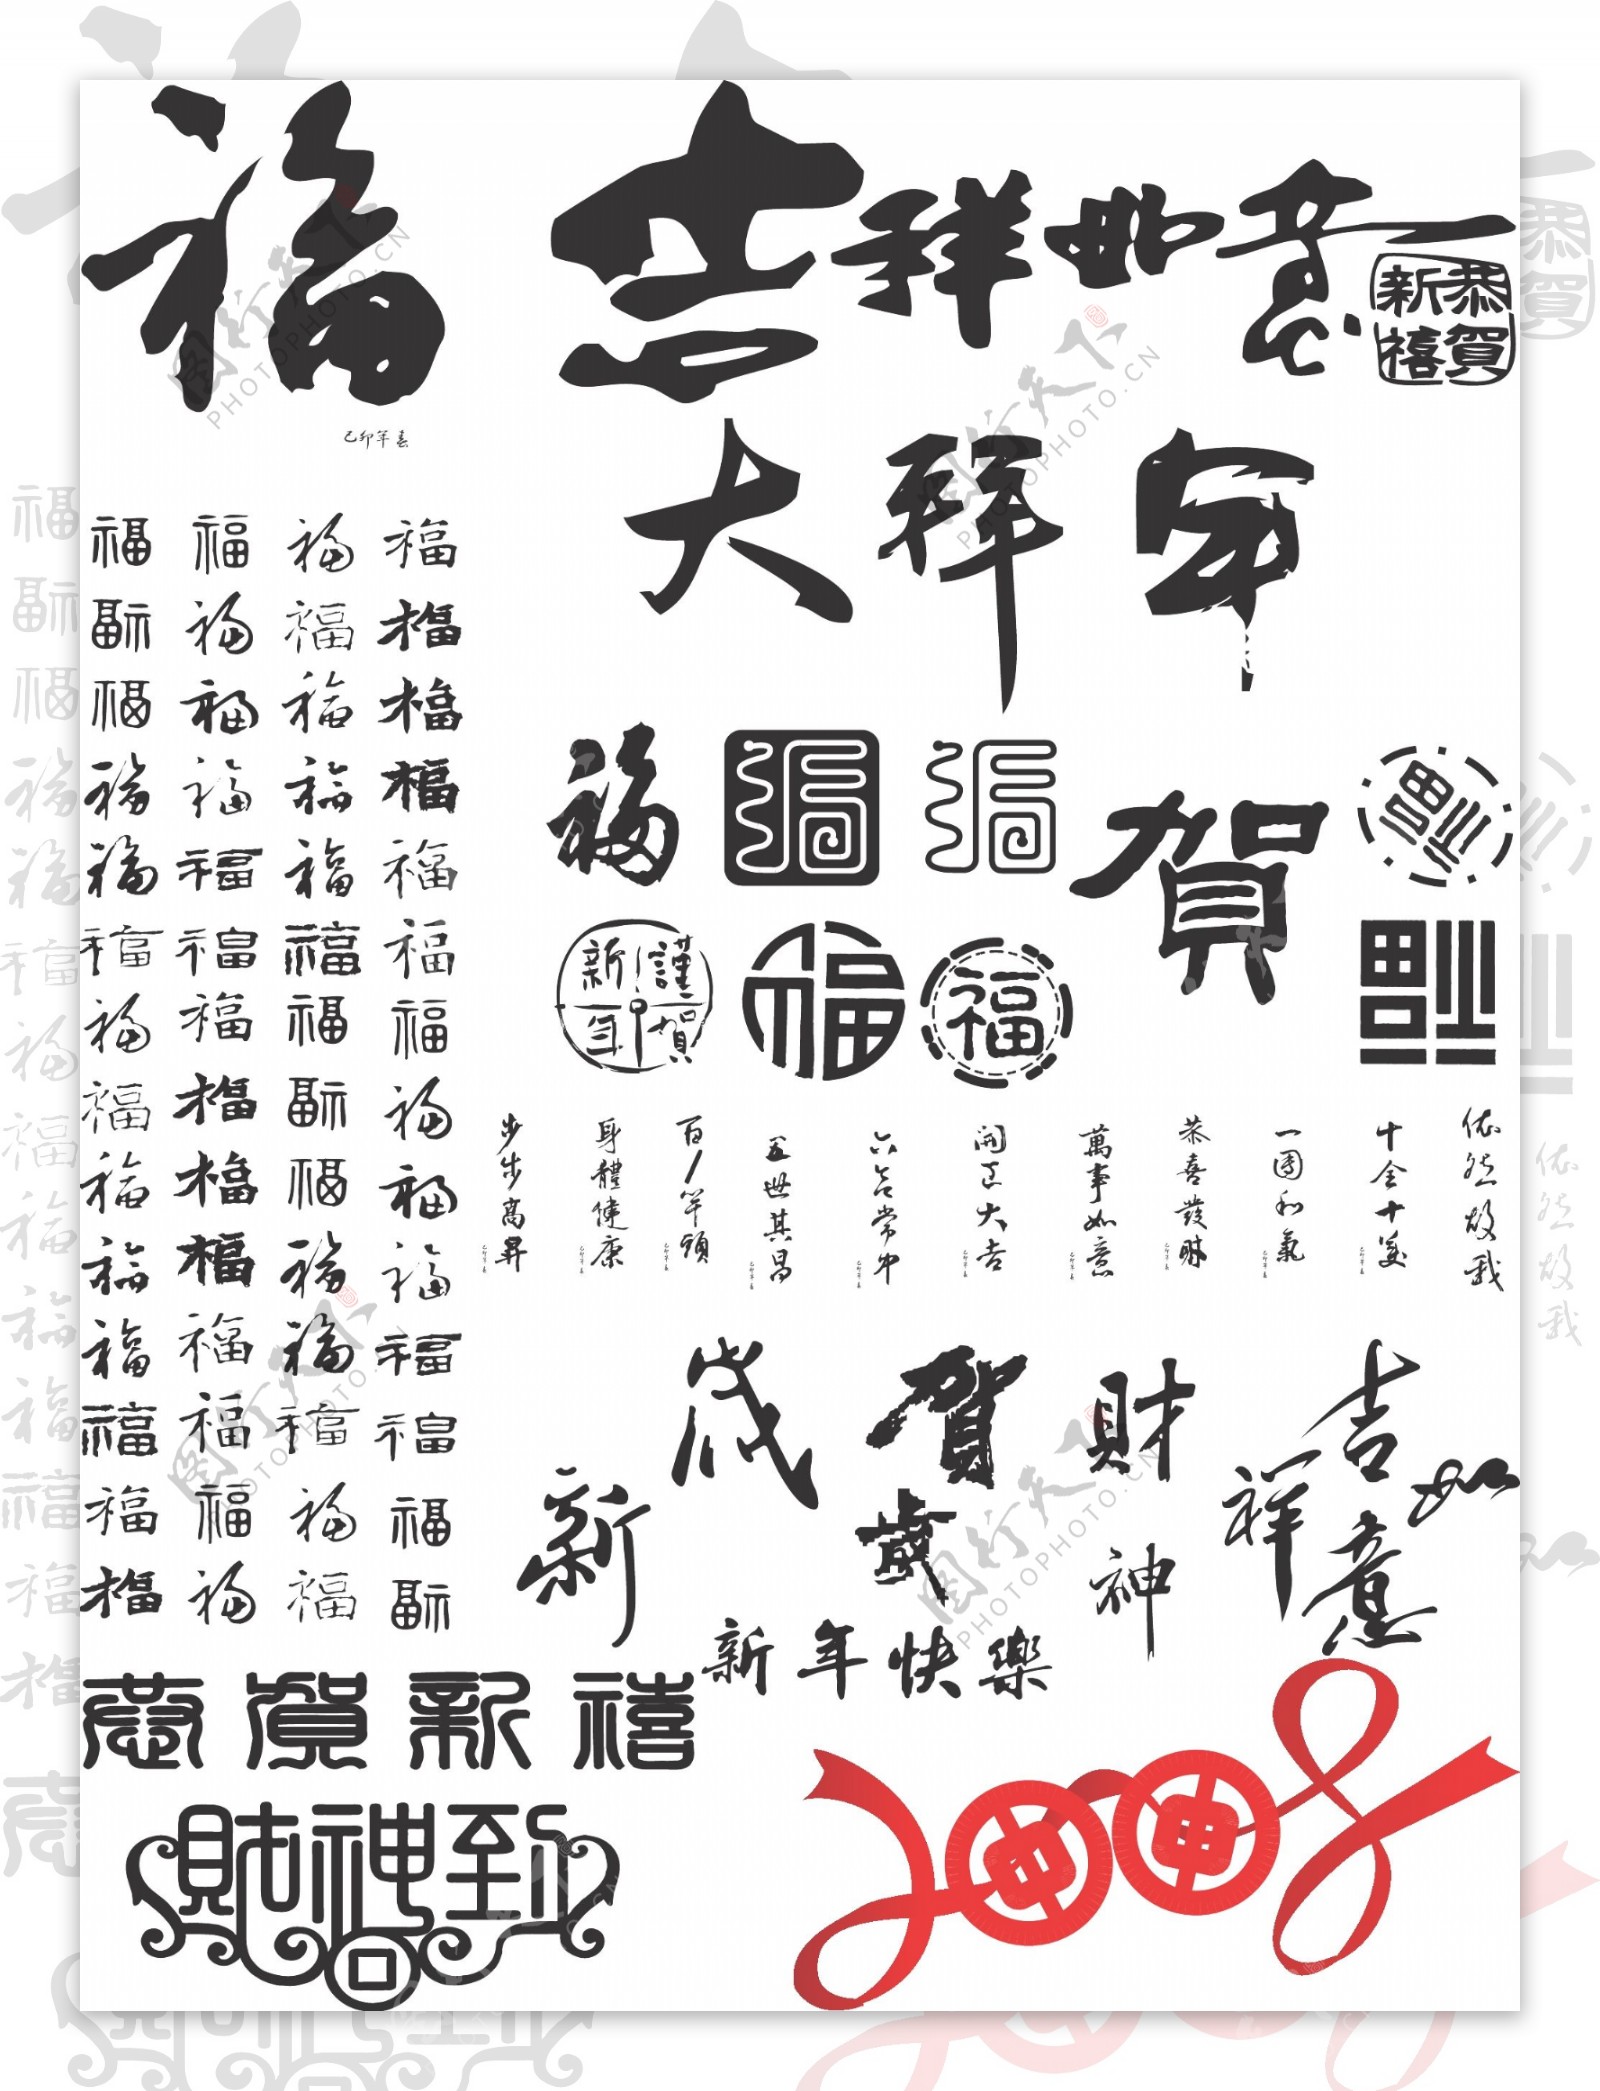 福
吉祥如意
恭賀
新禧
己卯年春
大拜年
福 福 福 福
福 福 福 福
福 福 福 福
福 福 福 福
福 福 福 福
福 福 福 福
福 福 福 福
福 福 福 福
福 福 福 福
福 福 福 福
福 福 福 福
福 福 福 福
福 福 福 福
福 福 福 福
福 福 福
賀
福
謹賀
新年
福
福
福
步步高昇
身體健康
百尺竿頭
五世其昌
六合常中
開正大吉
萬事如意
恭喜發財
一團和氣
十全十美
依然故我
歲
賀
財
吉
祥
如
意
新
歲
神
新年快樂
恭賀新禧
財神到
2008
图行天下
PHOTOPHOTO.CN